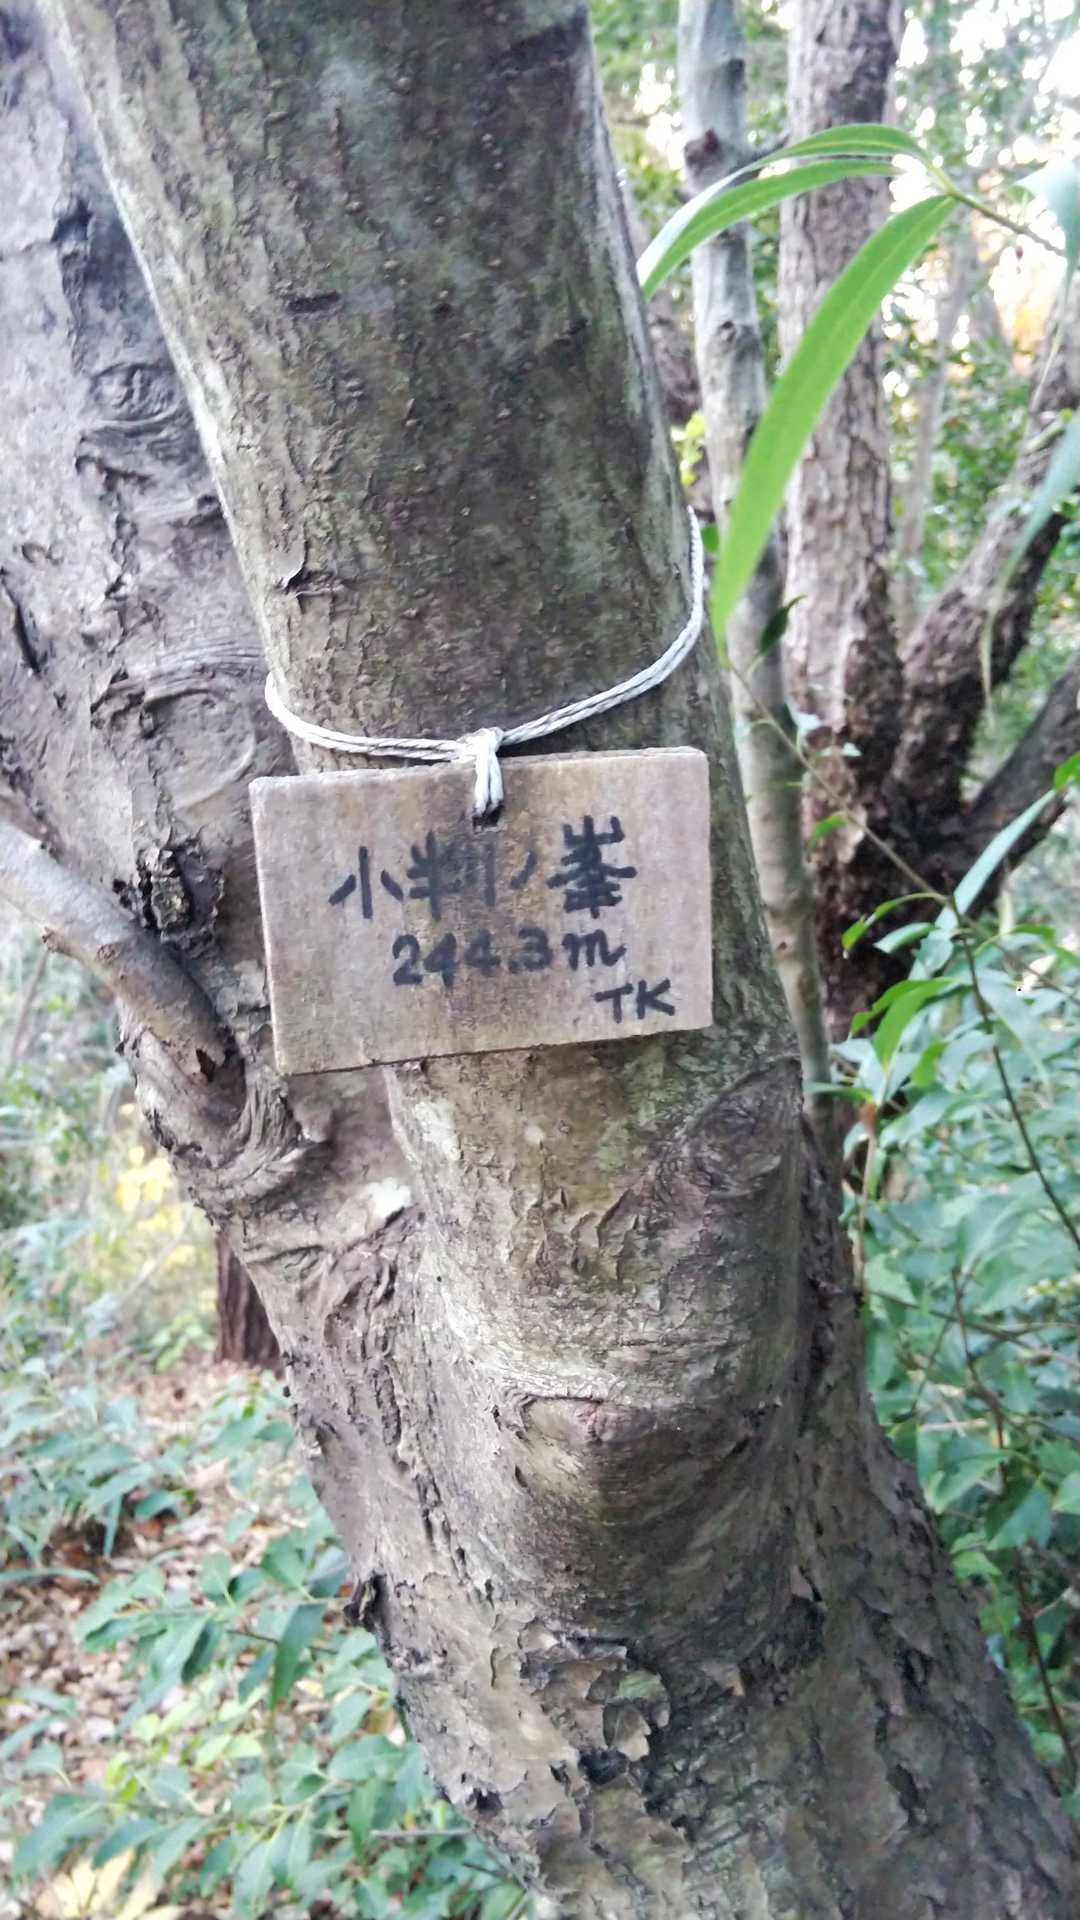 小判ノ峯
244.3m
TK